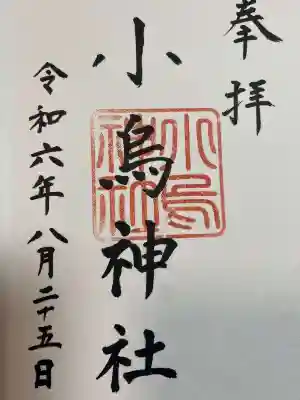 奉拝
小烏神社
小烏
神社
令和六年八月二十五日